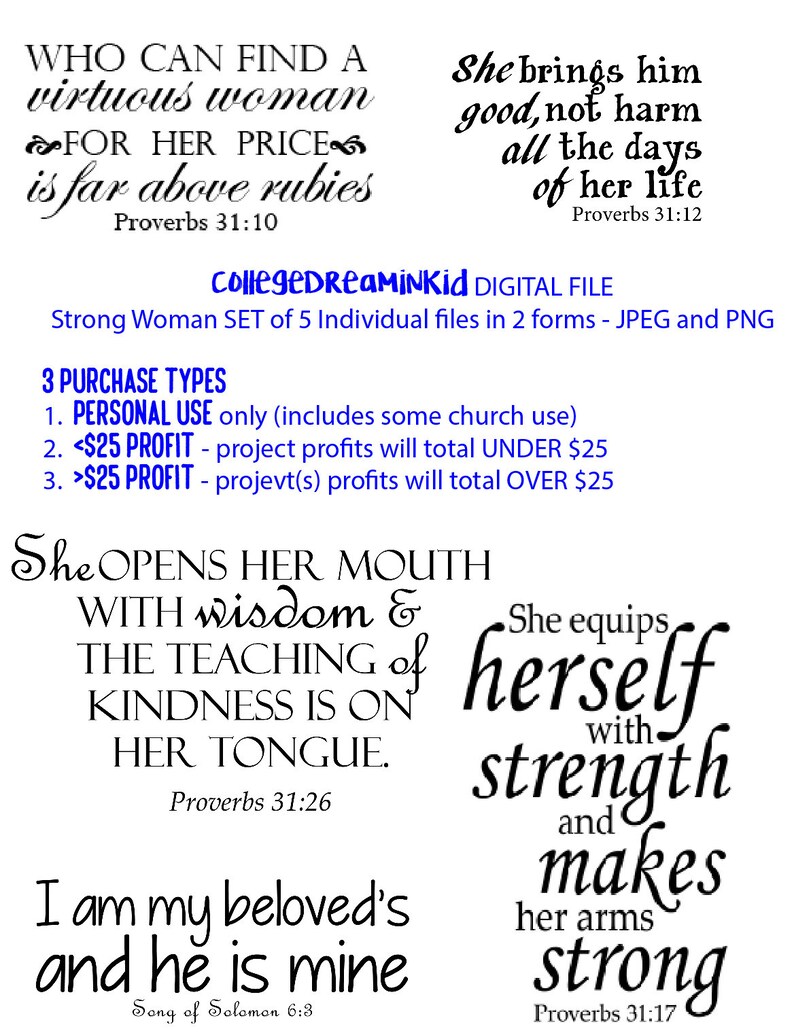 WHO CAN FIND A
virtuous woman
FOR HER PRICE
is far above rubies
Proverbs 31:10
She brings him
good, not harm
all the days
of her life
Proverbs 31:12
CollegeDreaminKid DIGITAL FILE
Strong Woman SET of 5 Individual files in 2 forms - JPEG and PNG
3 PURCHASE TYPES
1. PERSONAL USE only (includes some church use)
2. <$25 PROFIT - project profits will total UNDER $25
3. >$25 PROFIT - projevt(s) profits will total OVER $25
She OPENS HER MOUTH
WITH wisdom &
THE TEACHING of
KINDNESS IS ON
HER TONGUE.
Proverbs 31:26
She equips
herself
with
strength
and
makes
her arms
strong
Proverbs 31:17
I am my beloved's
and he is mine
Song of Solomon 6:3